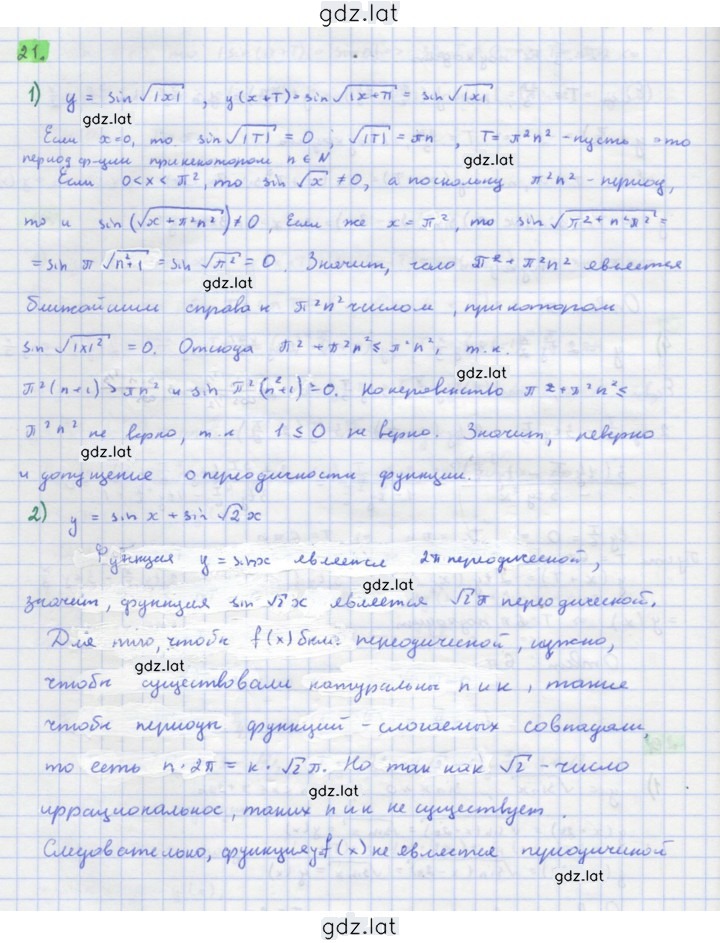 gdz.lat
21.
1) y = sin√|x| , y(x+T) = sin√|x+π| = sin√|x|
gdz.lat
Если x=0, то sin√|T| = 0 ; √|T| = πn , T = π²n² - пусть это
gdz.lat
период ф-ции при некотором n ∈ N
Если 0<x<π², то sin √x ≠0, а поскольку π²n² - период,
то и sin(√x+π²n²) ≠ 0, Если же x = π², то sin√π²+n²π² =
= sin π √n²+1 = sin √π² = 0. Значит, число π²+π²n² является
gdz.lat
ближайшим справа к π²n² числом, при котором
sin √|x|² = 0. Отсюда π² + π²n² ≤ π²n², т.к.
gdz.lat
π²(n+1) > πn² и sin π²(n²+1) = 0. Но неравенство π²+π²n² ≤
π²n² не верно, т.к 1 ≤ 0 не верно. Значит, неверно
gdz.lat
и допущение о периодичности функции.
2) y = sin x + sin √2 x
Функция y = sinx является 2π периодической,
gdz.lat
значит, функция sin √2 x является √2 π периодической.
Для того, чтобы f(x) была периодической, нужно,
gdz.lat
чтобы существовали натуральны n и к, такие
чтобы периоды функций - слогаемых совпадали,
то есть n · 2π = к · √2 π. Но так как √2 - число
gdz.lat
иррациональное, таких n и к не существует.
Следовательно, функция y=f(x) не является периодичиной
gdz.lat
gdz.lat